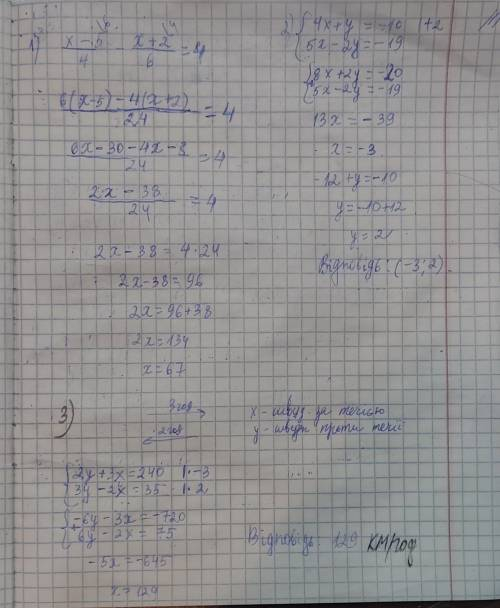 1) x-5/4 - x+2/6 = 4
6(x-5)-4(x+2)/24 = 4
6x-30-4x-8/24 = 4
2x-38/24 = 4
2x-38 = 4·24
2x-38 = 96
2x = 96+38
2x = 134
x = 67
2) { 4x+y = -10 |·2
5x-2y = -19
{ 8x+2y = -20
5x-2y = -19
13x = -39
x = -3
-12+y = -10
y = -10+12
y = 2
Відповідь: (-3; 2)
3)
3 год
2 год
x - швид за течією
y - швидк проти течії
{ 2y+3x = 240 |·-3
3y-2x = 35 |·2
{ -6y-3x = -720
6y-2x = 75
-5x = -645
x = 129
Відповідь: 129 км/год